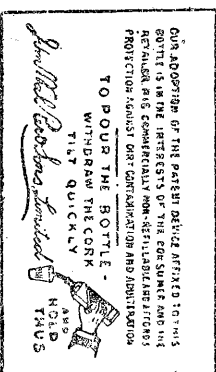 OUR ADOPTION OF THE PATENT DEVICE AFFIXED TO THIS
BOTTLE IS IN THE INTERESTS OF THE CONSUMER AND THE
RETAILER. IT IS COMMERCIALLY NON-REFILLABLE AND AFFORDS
PROTECTION AGAINST DIRT CONTAMINATION AND ADULTERATION
TO POUR THE BOTTLE -
WITHDRAW THE CORK
TILT QUICKLY
AND
HOLD
THUS
Limited